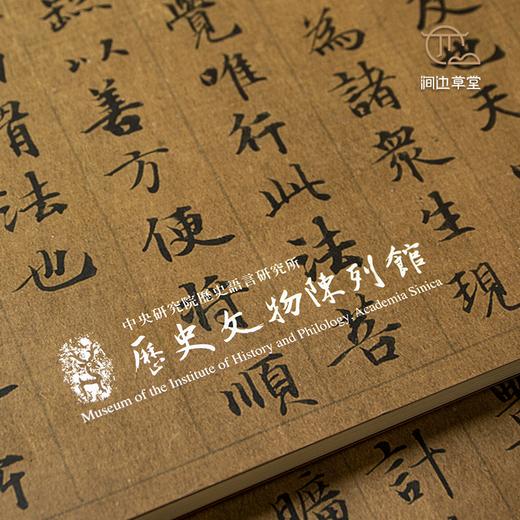 涧边草堂
也天
為諸眾生現
覺唯行此法菩
以善方便將順
法也
計
曠
中央研究院歷史語言研究所
歷史文物陳列館
Museum of the Institute of History and Philology, Academia Sinica